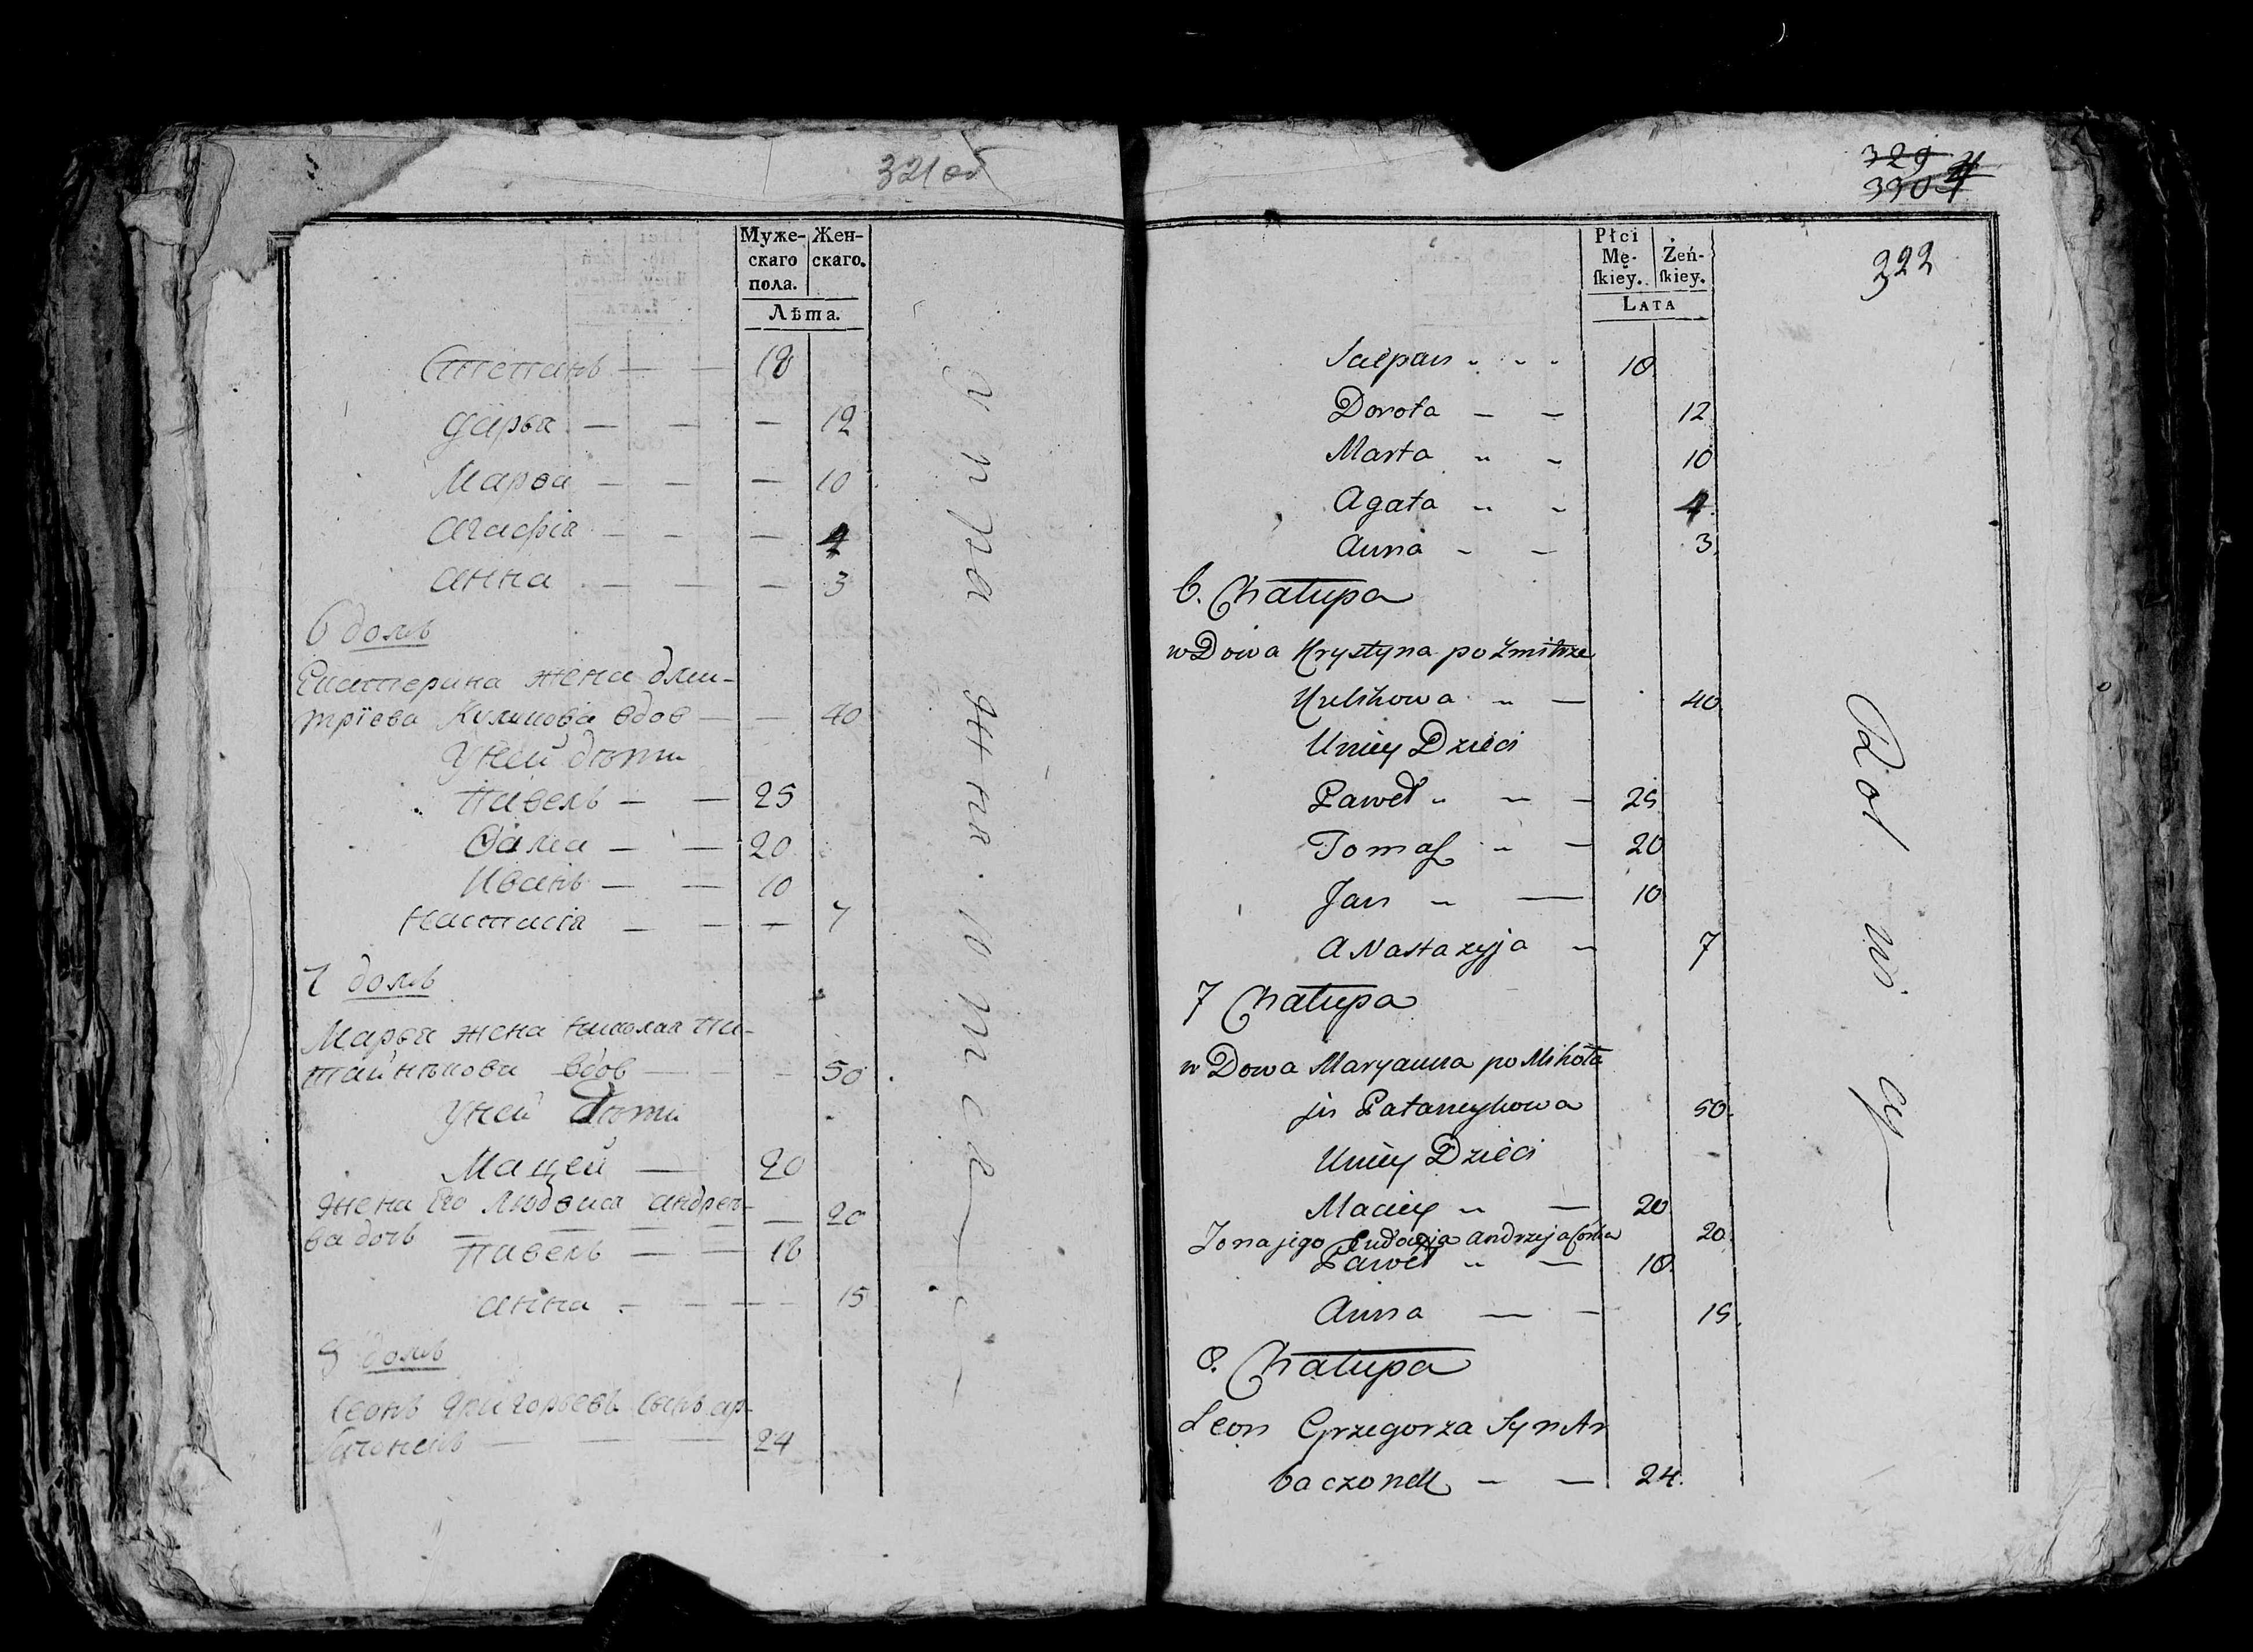 321 об
Муже-
скаго
пола.
Жен-
скаго.
Лѣта.
Степанъ — — 18
Дарья — — — 12
Марѳа — — — 10
Агафія — — — 4
Анна — — — 3
6 домъ
Екатерина жена Дми-
тріева Куликова вдов — — 40
У ней дѣти
Павелъ — — 25
Ѳома — — 20
Иванъ — — 10
Настасія — — — 7
7 домъ
Марья жена Николая Па-
танѣкова вдов — — 50
У ней Дѣти
Мацей — 20
Жена Его Людвика Андрее- — 20
ва дочь
Павелъ — — 18
Анна — — — 15
домъ
Леонъ Григорьевъ сынъ Ар-
— — — 24
329
330
4
322
Płci
Mę-
ſkiey.
Żeń-
ſkiey.
LATA
Sciepan „ „ „ 18
Dorota — — 12
Marta „ — 10
Agata „ — 4
Anna — — 3
6. Chałupa
wDowa Krystyna po Zmitrze
Kulikowa „ — 40
Uniey Dzieci
Paweł „ — — 25
Tomaſz „ — 20
Jan „ — 10
ANastazyja — 7
7 Chałupa
wDowa Maryanna po Mikoła
ju Pataneykowa 50
Uniey Dzieci
Maciey „ — 20
Zona jego Ludowija Andrzeja Corka 20
Paweł „ — 18
Anna — — 15
8. Chałupa
Leon Grzegorza Syn Ar
baczonek — — 24.